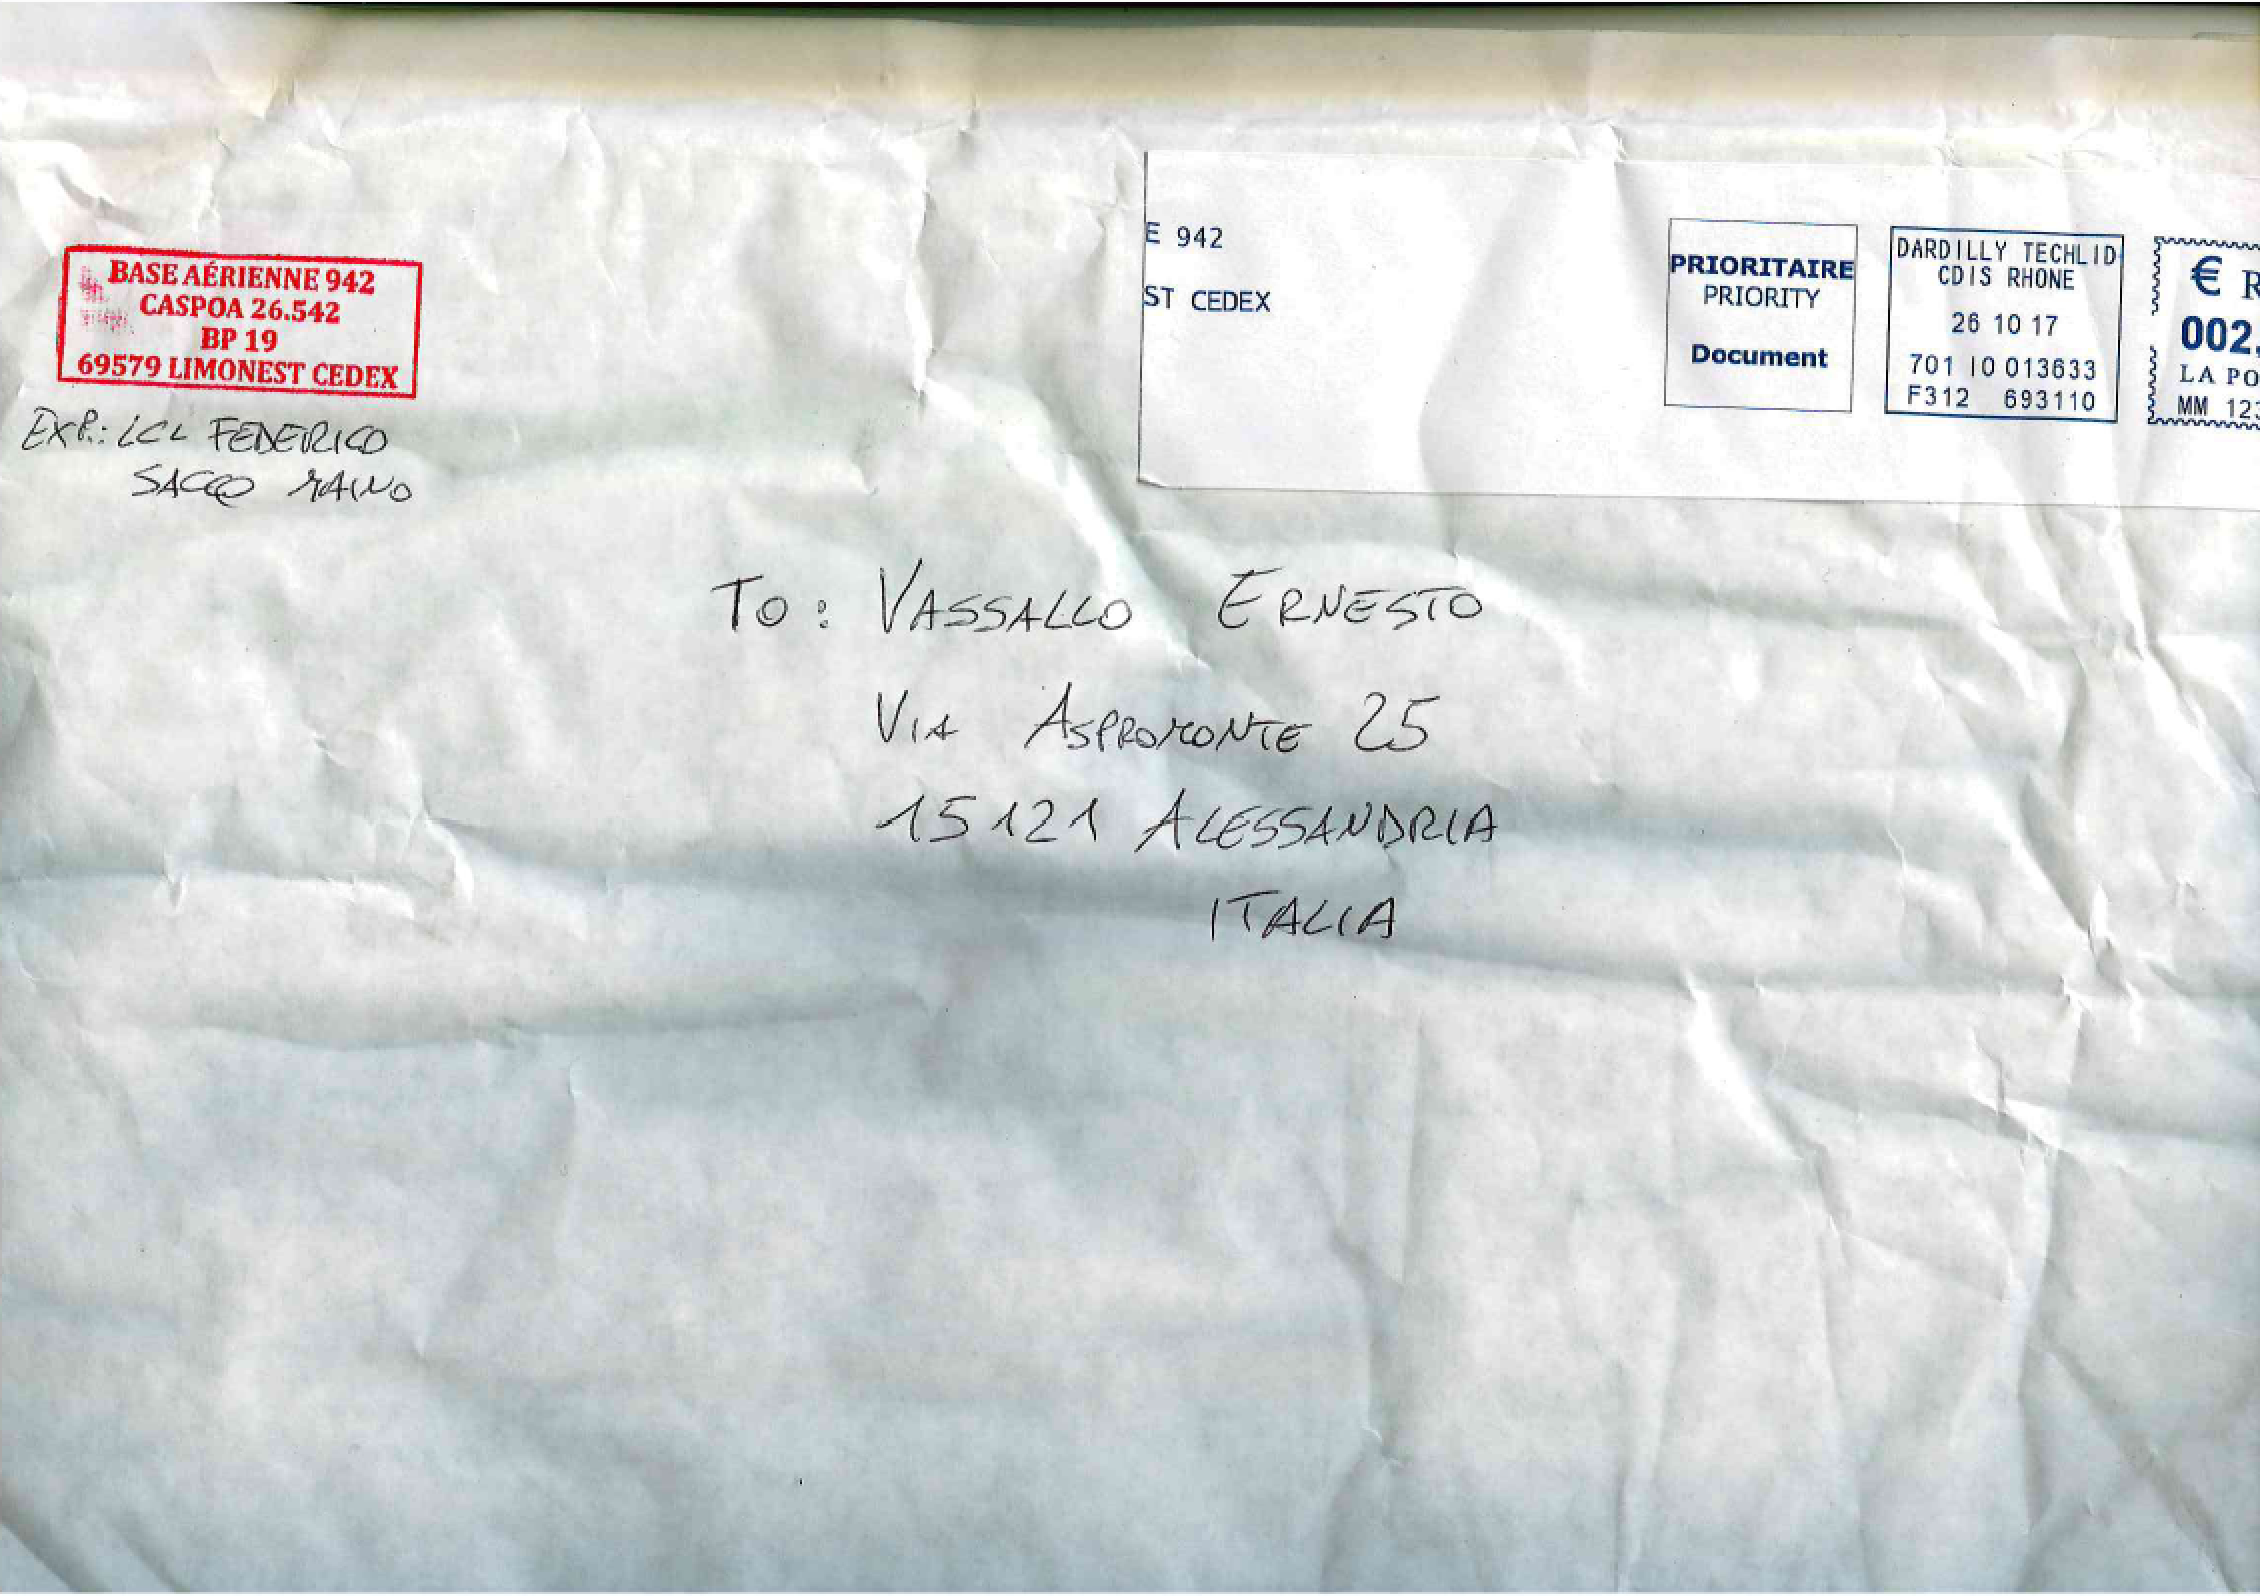 BASE AÉRIENNE 942
CASPOA 26.542
BP 19
69579 LIMONEST CEDEX
EXP.: LCL FEDERICO
SACCO MAINO
E 942
ST CEDEX
PRIORITAIRE
PRIORITY
Document
DARDILLY TECHLID
CDIS RHONE
26 10 17
701 IO 013633
F312 693110
€ R
002,
LA PO
MM 123
TO: VASSALLO ERNESTO
VIA ASPROMONTE 25
15121 ALESSANDRIA
ITALIA